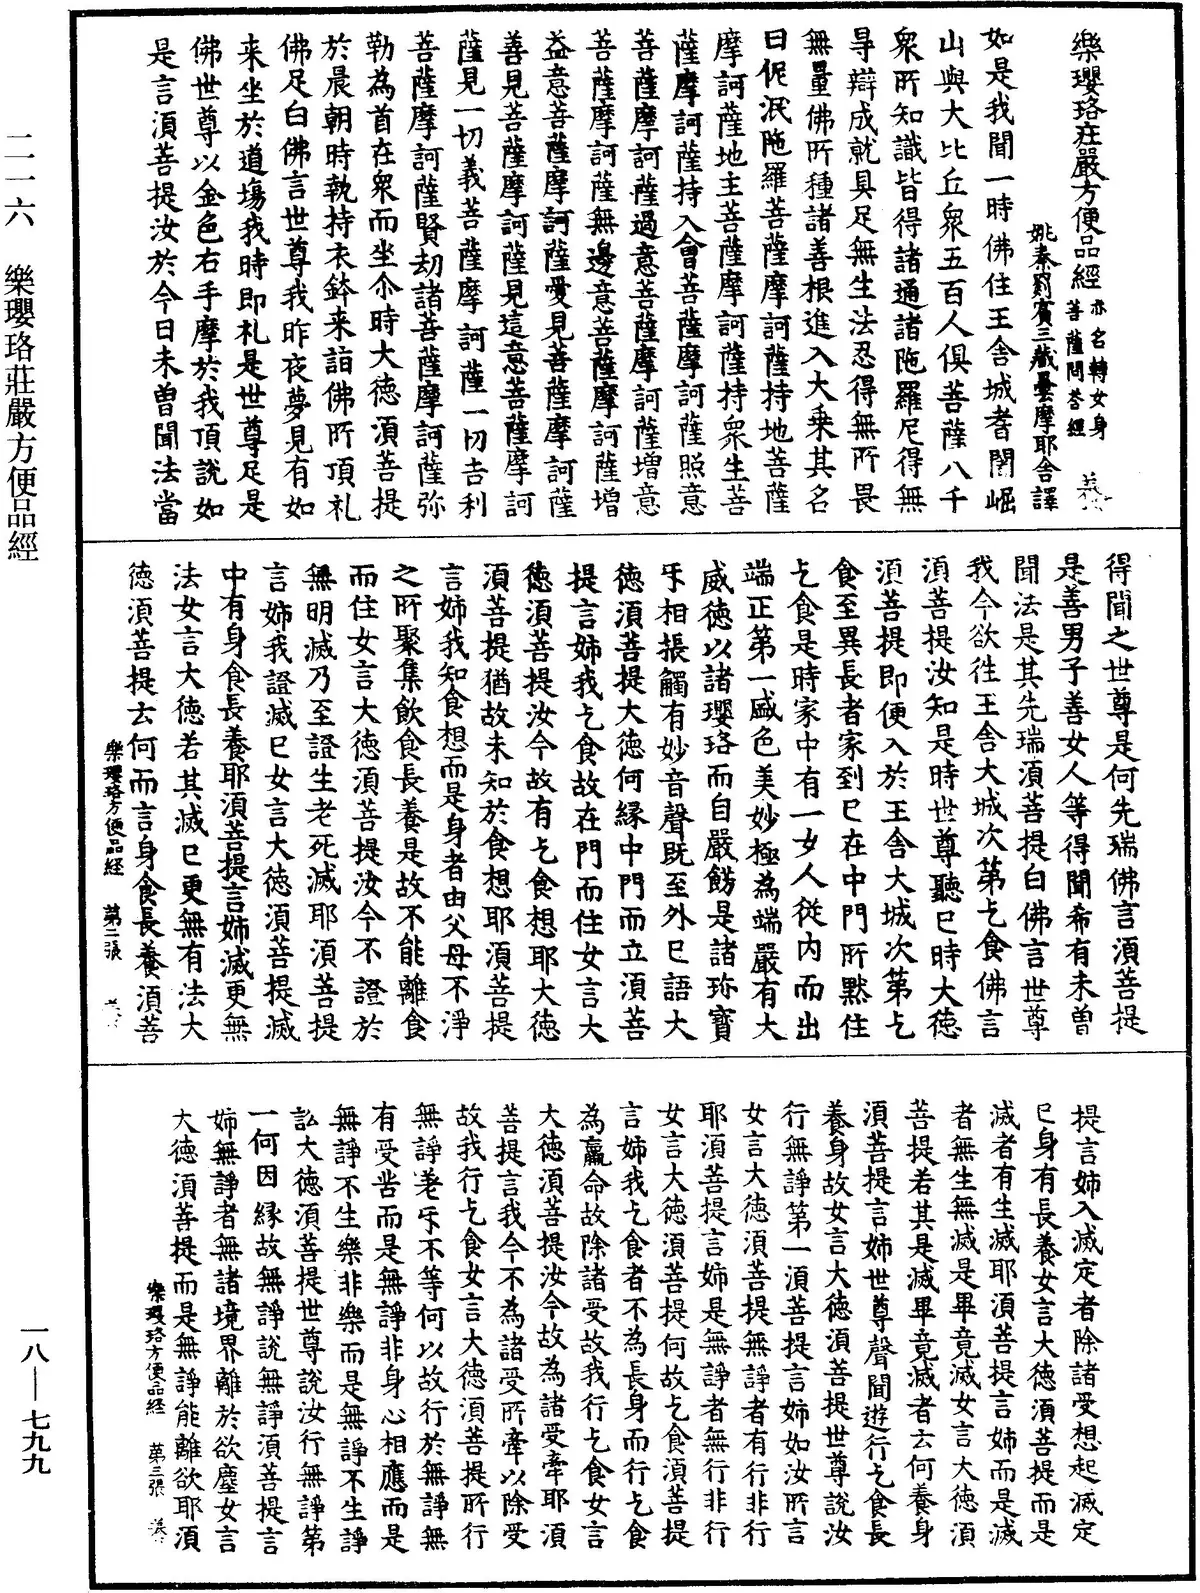 樂瓔珞莊嚴方便品經 亦名轉女身
菩薩問荅經
姚秦罽賓三藏曇摩耶舍譯
如是我聞一時佛住王舍城耆闍崛
山與大比丘衆五百人俱菩薩八千
衆所知識皆得諸通諸陁羅尼得無
㝵辯成就具足無生法忍得無所畏
無量佛所種諸善根進入大乗其名
曰伲泯陁羅菩薩摩訶薩持地菩薩
摩訶薩地主菩薩摩訶薩持衆生菩
薩摩訶薩持入會菩薩摩訶薩照意
菩薩摩訶薩過意菩薩摩訶薩増意
菩薩摩訶薩無邊意菩薩摩訶薩増
益意菩薩摩訶薩愛見菩薩摩訶薩
善見菩薩摩訶薩見這意菩薩摩訶
薩見一切義菩薩摩訶薩一切吉利
菩薩摩訶薩賢劫諸菩薩摩訶薩弥
勒為首在衆而坐尒時大德湏菩提
於晨朝時執持衣鉢来詣佛所頂礼
佛足白佛言世尊我昨夜夢見有如
来坐於道塲我時即礼是世尊足是
佛世尊以金色右手摩於我頂說如
是言湏菩提汝於今日未曽聞法當
得聞之世尊是何先瑞佛言湏菩提
是善男子善女人等得聞希有未曽
聞法是其先瑞湏菩提白佛言世尊
我今欲往王舍大城次第乞食佛言
湏菩提汝知是時世尊聽巳時大德
湏菩提即便入於王舍大城次第乞
食至異長者家到巳在中門所黙住
乞食是時家中有一女人従内而出
端正第一盛色美妙極為端嚴有大
威德以諸瓔珞而自嚴餝是諸珎寶
㸦相振觸有妙音聲既至外巳語大
德湏菩提大德何縁中門而立湏菩
提言姉我乞食故在門而住女言大
德湏菩提汝今故有乞食想耶大德
湏菩提猶故未知於食想耶湏菩提
言姉我知食想而是身者由父母不淨
之所聚集飲食長養是故不能離食
而住女言大德湏菩提汝今不證於
無明滅乃至證生老死滅耶湏菩提
言姉我證滅巳女言大德湏菩提滅
中有身食長養耶湏菩提言姉滅更無
法女言大德若其滅巳更無有法大
德湏菩提云何而言身食長養湏菩
樂瓔珞方便品經 第二張
提言姉入滅定者除諸受想起滅定
巳身有長養女言大德湏菩提而是
滅者有生滅耶湏菩提言姉而是滅
者無生無滅是畢竟滅女言大德湏
菩提若其是滅畢竟滅者云何養身
湏菩提言姉世尊聲聞遊行乞食長
養身故女言大德湏菩提世尊說汝
行無諍第一湏菩提言姉如汝所言
女言大德湏菩提無諍者有行非行
耶湏菩提言姉是無諍者無行非行
女言大德湏菩提何故乞食湏菩提
言姉我乞食者不為長身而行乞食
為羸命故除諸受故我行乞食女言
大德湏菩提汝今故為諸受牽耶湏
菩提言我今不為諸受所牽以除受
故我行乞食女言大德湏菩提所行
無諍㸦不等何以故行於無諍無
有受岀而是無諍非身心相應而是
無諍不生樂非樂而是無諍不生諍
訟大德湏菩提世尊說汝行無諍第
一何因縁故無諍說無諍湏菩提言
姉無諍者無諸境界離於欲塵女言
大德湏菩提而是無諍能離欲耶湏
樂瓔珞方便品經 第三張
二一一六 樂瓔珞莊嚴方便品經
一八—七九九